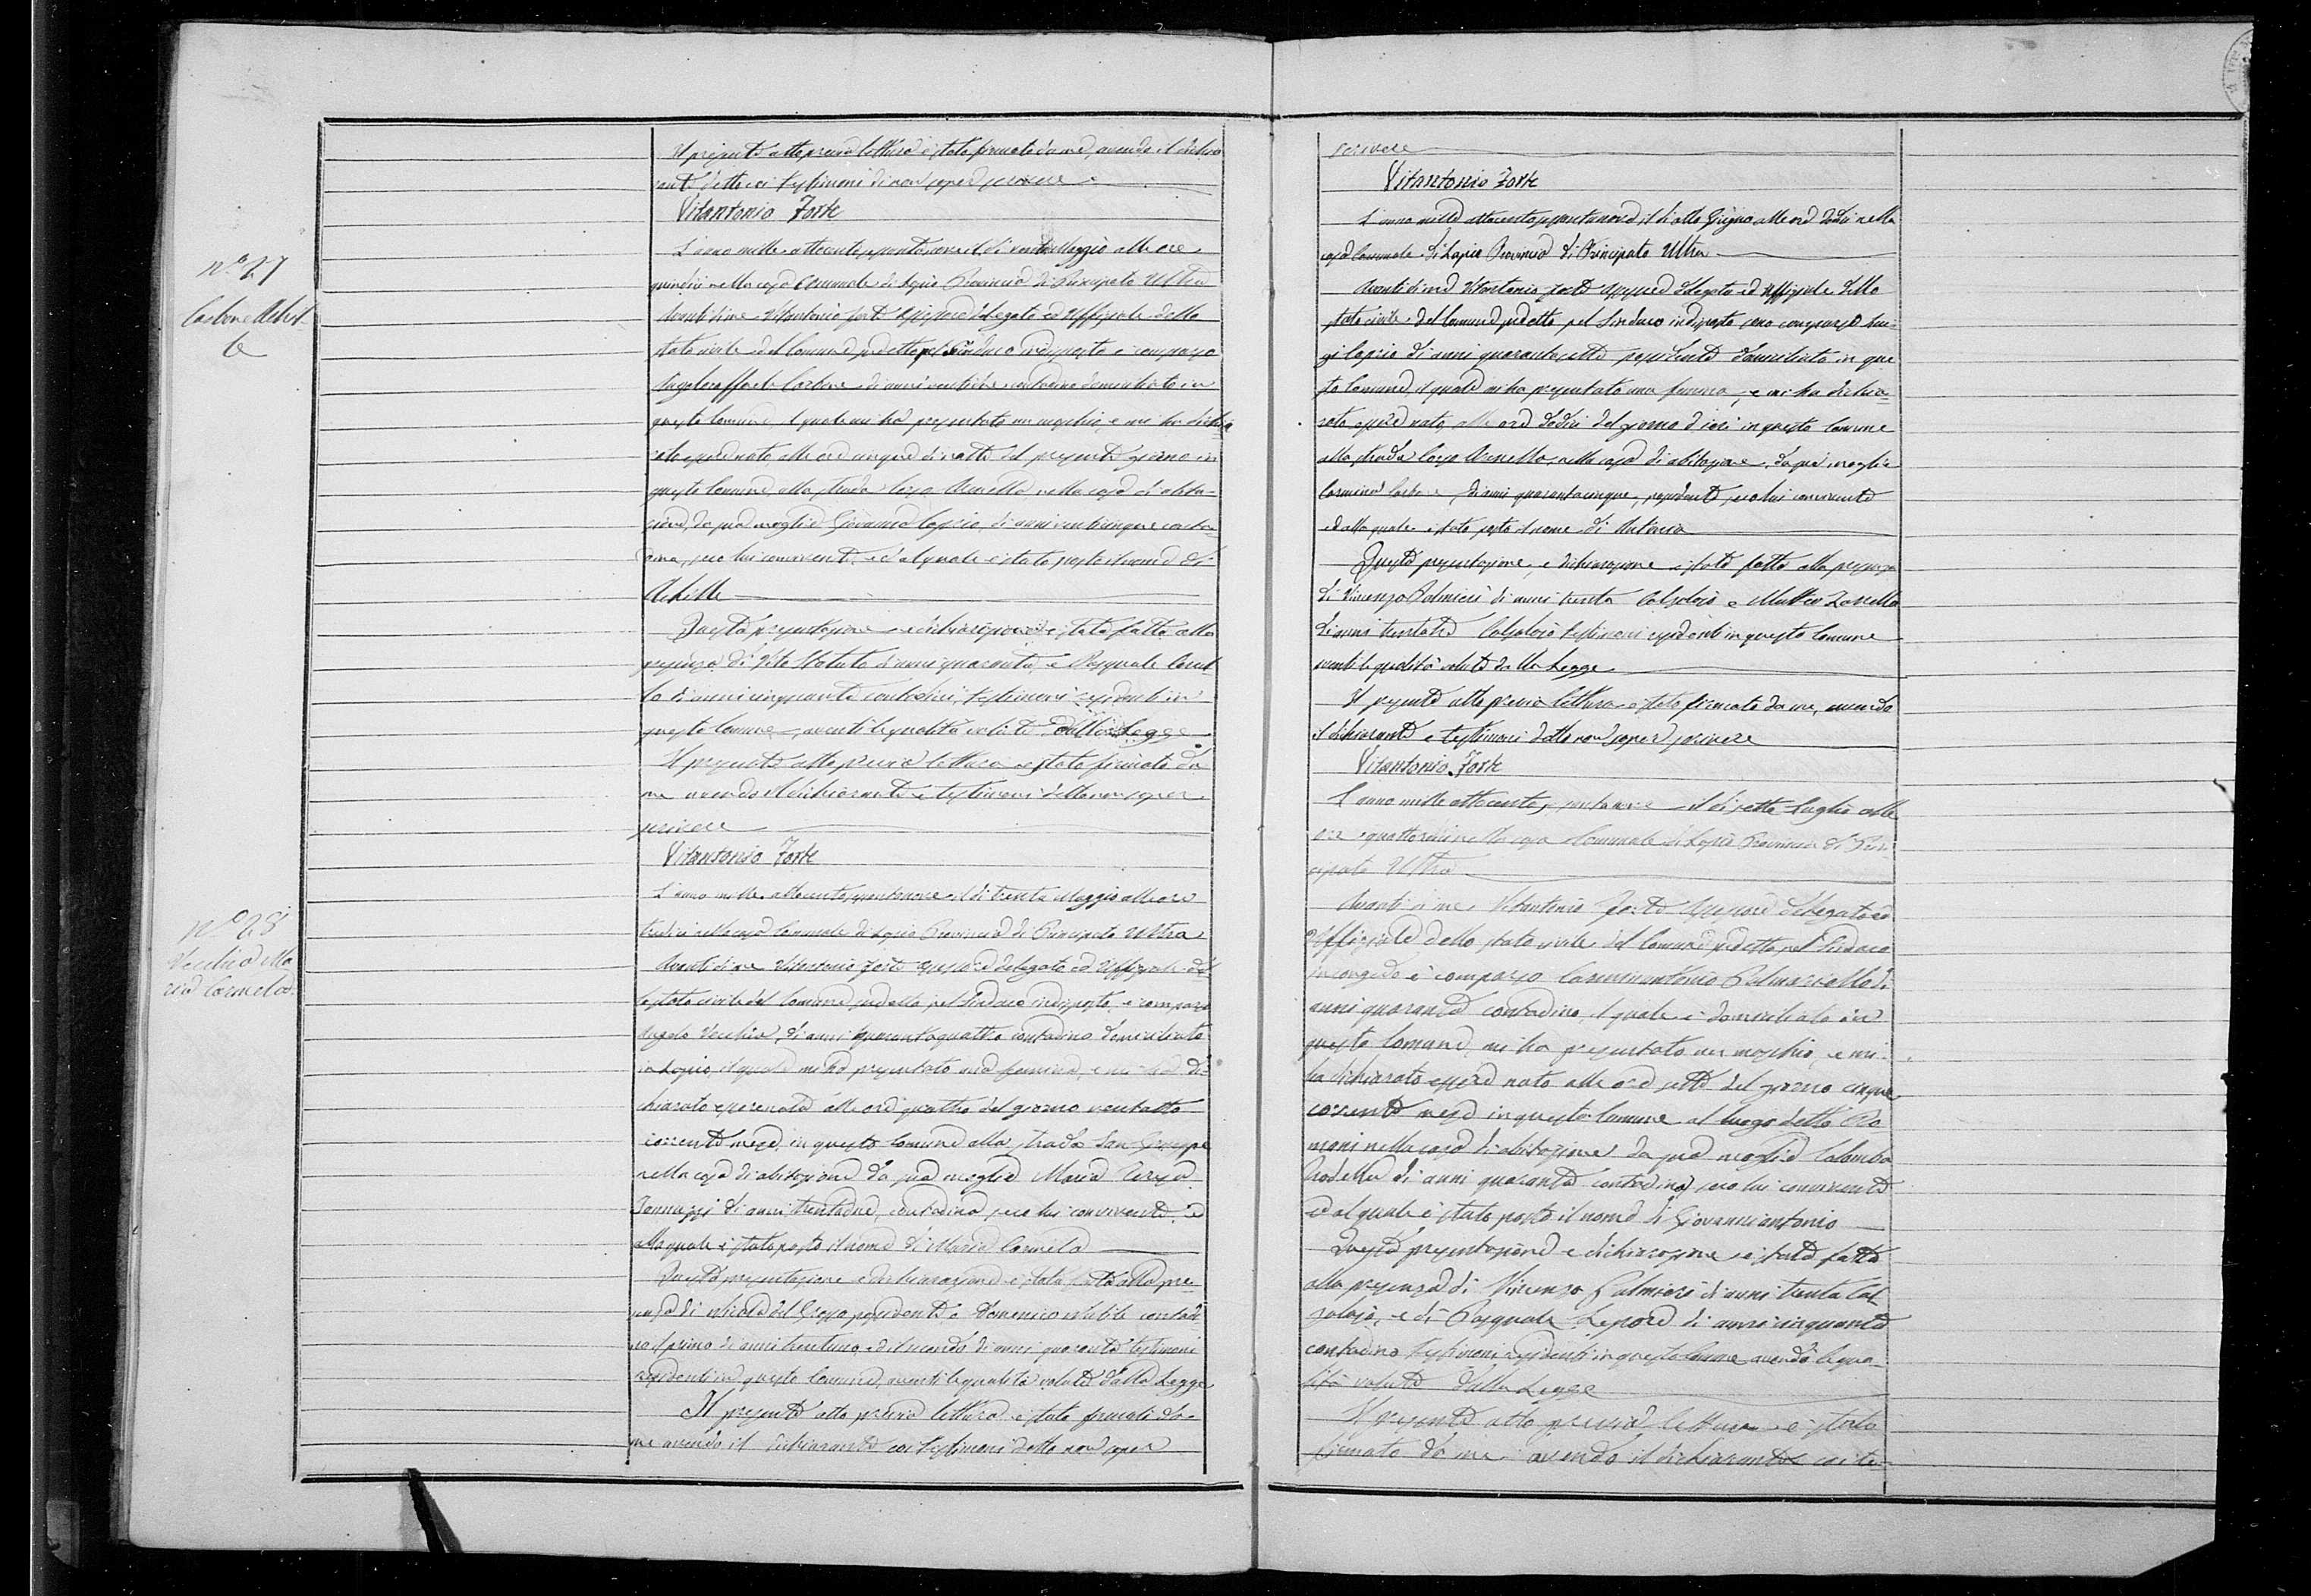 Il presente atto previa lettura è stato firmato da me, avendo il dichia
rante detto coi testimoni di non saper scrivere
Vitantonio Forte
N.° 27
Carbone Achil-
le
L'anno mille ottocento settantanove il dì Maggio alle ore
quindici nella casa Comunale di Lapio Provincia di Principato Ultra
Avanti di me Vitantonio Forte Assessore delegato ed Uffiziale dello
stato civile del Comune suddetto pel Sindaco indisposto è comparso
Carbone di anni contadino domiciliato in
questo Comune, il quale mi ha presentato un maschio, e mi ha dichia
rato essere nato alle ore cinque di notte del presente giorno in
questo Comune, alla strada Corso Aunella, nella casa di abita-
zione, da sua moglie Giovanna Lapio, di anni venticinque conta
dina, seco lui convivente, ed al quale è stato posto il nome di
Achille
Questa presentazione e dichiarazione è stata fatta alla
presenza di Vito Statuto di anni quaranta, e Pasquale
di anni cinquanta contadini, testimoni residenti in
questo Comune, aventi le qualità volute dalla Legge
Il presente atto previa lettura è stato firmato da
me avendo il dichiarante e testimoni detto non saper
scrivere
Vitantonio Forte
N.° 28
Vecchia Ma
ria Carmela
L'anno mille ottocento settantanove il dì trenta Maggio alle ore
tredici nella casa Comunale di Lapio Provincia di Principato Ultra
Avanti di me Vitantonio Forte Assessore delegato ed Uffiziale del
lo stato civile del Comune suddetto pel Sindaco indisposto, è comparso
Angelo Vecchia, di anni quarantaquattro contadino domiciliato
in Lapio, il quale mi ha presentato una femina, e mi ha di-
chiarato essere nata alle ore quattro del giorno ventotto
corrente mese, in questo Comune alla strada San Giuseppe
nella casa di abitazione da sua moglie Maria Teresa
Iannuzzi di anni trentadue, contadina, seco lui convivente, ed
alla quale è stato posto il nome di Maria Carmela
Questa presentazione e dichiarazione è stata fatta alla pre
senza di Nicola del Grosso possidente, e Domenico contadi
no il primo di anni trentuno, ed il secondo di anni quaranta testimoni
residenti in questo Comune, aventi le qualità volute dalla Legge
Il presente atto previa lettura è stato firmato da
me avendo il dichiarante coi testimoni detto non saper
scrivere
Vitantonio Forte
L'anno mille ottocento settantanove il dì otto Giugno alle ore dodici nella
casa Comunale di Lapio Provincia di Principato Ultra
Avanti di me Vitantonio Forte Assessore delegato ed Uffiziale dello
stato civile del Comune suddetto pel Sindaco indisposto sono comparso
Lapio di anni quarantasette possidente domiciliato in que
sto Comune, il quale mi ha presentato una femina, e mi ha dichia
rato essere nata alle ore dodici del giorno d'ieri in questo Comune
alla strada Corso Aunella, nella casa di abitazione, da sua moglie
Carmina Carbone di anni quarantacinque, possidente, seco lui convivente
ed alla quale è stato posto il nome di Antonia
Questa presentazione, e dichiarazione è stata fatta alla presenza
di Vincenzo Palmieri di anni trenta Calzolaio e Matteo Zarrella
di anni trentatre Calzolaio testimoni residenti in questo Comune
aventi le qualità volute dalla Legge
Il presente atto previa lettura è stato firmato da me, avendo
il dichiarante e testimoni detto non saper scrivere
Vitantonio Forte
L'anno mille ottocento settantanove il dì sette Luglio alle
ore quattordici nella casa Comunale di Lapio Provincia di Prin
cipato Ultra
Avanti di me Vitantonio Forte Assessore delegato ed
Uffiziale dello stato civile del Comune suddetto, pel Sindaco
in congedo è comparso Carminantonio Palmariello di
anni quaranta contadino, il quale è domiciliato in
questo Comune, mi ha presentato un maschio, e mi
ha dichiarato essere nato alle ore sette del giorno cinque
corrente mese in questo Comune al luogo detto Ro
mani nella casa di abitazione da sua moglie Colomba
di anni quaranta contadina, seco lui convivente
ed al quale è stato posto il nome di Giovannantonio
Questa presentazione e dichiarazione è stata fatta
alla presenza di Vincenzo Palmieri di anni trenta Cal
zolajo, e di Pasquale Lepore di anni cinquanta
contadino testimoni residenti in questo Comune avendo le qua
lità volute dalla Legge
Il presente atto previa lettura è stato
firmato da me avendo il dichiarante coi te-